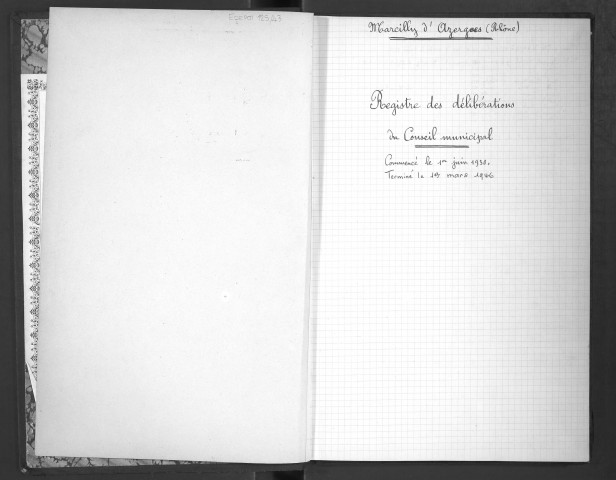 Marcilly d'Azergues (Rhône)
Registre des délibérations
du Conseil municipal
Commencé le 1er juin 1938.
Terminé le 1er mars 1946